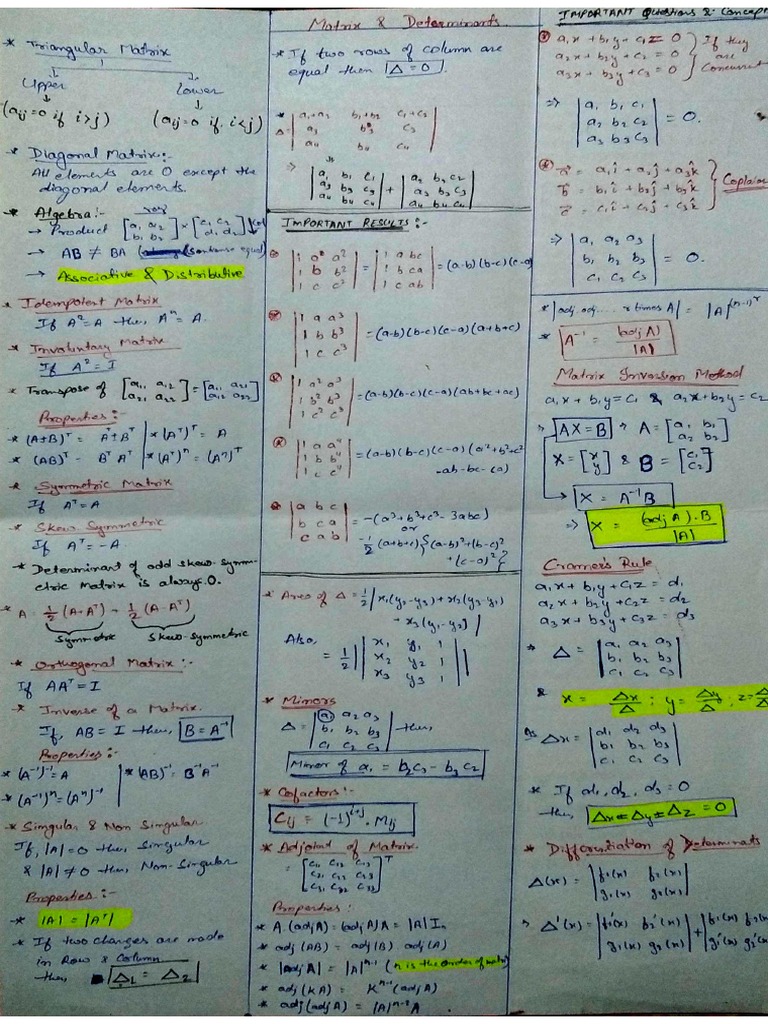 * Triangular Matrix
Upper Lower
(aij=0 if i>j) (aij=0 if i<j)
* Diagonal Matrix:-
All elements are 0 except the
diagonal elements.
* Algebra:-
→ Product [a1 a2 / b1 b2] × [c1 c2 / d1 d2]
→ AB ≠ BA
→ Associative & Distributive
* Idempotent Matrix
If A²=A then, Aⁿ = A.
* Involuntary Matrix
If A² = I
* Transpose of [a11 a12 / a21 a22] = [a11 a21 / a12 a22]
Properties:-
* (A±B)ᵀ = Aᵀ±Bᵀ | * (Aᵀ)ᵀ = A
* (AB)ᵀ = BᵀAᵀ | * (Aᵀ)ⁿ = (Aⁿ)ᵀ
* Symmetric Matrix
If Aᵀ = A
* Skew Symmetric
If Aᵀ = -A
* Determinant of odd skew-symm-
etric Matrix is always 0.
* A = ½(A+Aᵀ) + ½(A-Aᵀ)
symmetric skew-symmetric
* Orthogonal Matrix:-
If AAᵀ = I
* Inverse of a Matrix.
If, AB = I then, B = A⁻¹
Properties:-
* (A⁻¹)⁻¹ = A | * (AB)⁻¹ = B⁻¹A⁻¹
* (A⁻¹)ⁿ = (Aⁿ)⁻¹
* Singular & Non Singular
If, |A| = 0 then, Singular
& |A| ≠ 0 then, Non-Singular
Properties:-
* |A| = |Aᵀ|
* If two changes are made
in Row & Column
then, Δ1 = Δ2
Matrix & Determinants
* If two rows of column are
equal then Δ = 0.
* Δ = |a1+a2 b1+b2 c1+c2 / a3 b3 c3 / a4 b4 c4|
⇒ |a1 b1 c1 / a3 b3 c3 / a4 b4 c4| + |a2 b2 c2 / a3 b3 c3 / a4 b4 c4|
IMPORTANT RESULTS:-
|1 a a² / 1 b b² / 1 c c²| = |1 a bc / 1 b ca / 1 c ab| = (a-b)(b-c)(c-a)
|1 a a³ / 1 b b³ / 1 c c³| = (a-b)(b-c)(c-a)(a+b+c)
|1 a² a³ / 1 b² b³ / 1 c² c³| = (a-b)(b-c)(c-a)(ab+bc+ac)
|1 a a⁴ / 1 b b⁴ / 1 c c⁴| = (a-b)(b-c)(c-a)(a²+b²+c²
-ab-bc-ca)
|a b c / b c a / c a b| = -(a³+b³+c³-3abc)
or
-½(a+b+c){(a-b)²+(b-c)²
+(c-a)²}
* Area of Δ = ½|x1(y2-y3)+x2(y3-y1)
+x3(y1-y2)|
Also,
= ½||x1 y1 1 / x2 y2 1 / x3 y3 1||
* Minors
Δ = |a1 a2 a3 / b1 b2 b3 / c1 c2 c3| then,
Minor of a1 = b2c3 - b3c2
* Cofactors:-
Cij = (-1)ⁱ⁺ʲ . Mij
* Adjoint of Matrix.
= [c11 c12 c13 / c21 c22 c23 / c31 c32 c33]ᵀ
Properties:
* A.(adjA) = (adjA)A = |A|In
* adj(AB) = adj(B) adj(A)
* |adjA| = |A|ⁿ⁻¹ (n is the order of matrix)
* adj(KA) = Kⁿ⁻¹(adjA)
* adj(adjA) = |A|ⁿ⁻²A
IMPORTANT Questions & Concept
a1x + b1y + c1 = 0
a2x + b2y + c2 = 0
a3x + b3y + c3 = 0
If they
are
Concurrent
⇒ |a1 b1 c1 / a2 b2 c2 / a3 b3 c3| = 0.
a⃗ = a1î + a2ĵ + a3k̂
b⃗ = b1î + b2ĵ + b3k̂
c⃗ = c1î + c2ĵ + c3k̂
Coplanar
⇒ |a1 a2 a3 / b1 b2 b3 / c1 c2 c3| = 0.
* |adj.adj..... r times A| = |A|⁽ⁿ⁻¹⁾ʳ
* A⁻¹ = (adjA)/|A|
Matrix Inversion Method
a1x + b1y = c1 & a2x + b2y = c2
⇒ AX = B ⇒ A = [a1 b1 / a2 b2]
X = [x / y] & B = [c1 / c2]
→ X = A⁻¹B
⇒ X = (adj A).B/|A|
Cramer's Rule
a1x + b1y + c1z = d1
a2x + b2y + c2z = d2
a3x + b3y + c3z = d3
* Δ = |a1 a2 a3 / b1 b2 b3 / c1 c2 c3|
& x = Δx/Δ ; y = Δy/Δ ; z = Δz/Δ
as Δx = |d1 d2 d3 / b1 b2 b3 / c1 c2 c3|
* If d1, d2, d3 = 0
then, Δx = Δy = Δz = 0
* Differentiation of Determinants
Δ(x) = |f1(x) f2(x) / g1(x) g2(x)|
⇒ Δ'(x) = |f1'(x) f2'(x) / g1(x) g2(x)| + |f1(x) f2(x) / g1'(x) g2'(x)|